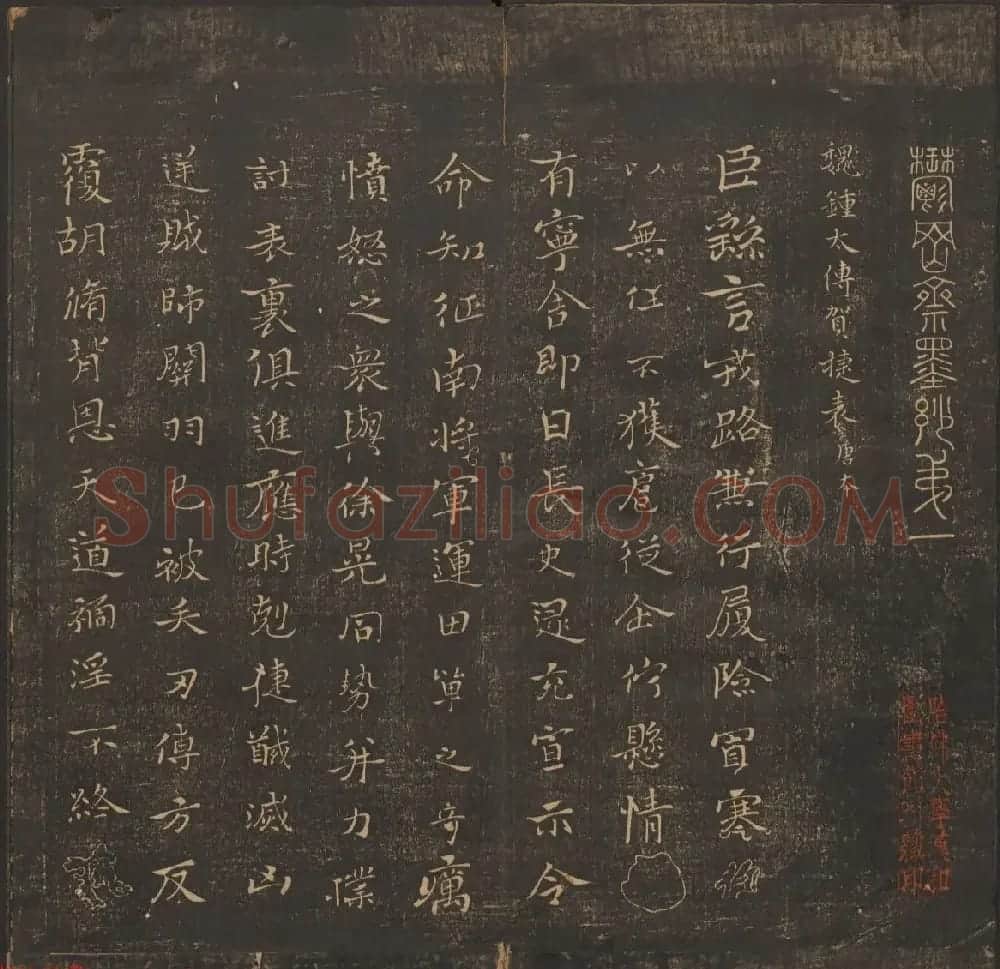 鬱岡齋墨妙第一
魏鍾太傅賀捷表唐
臣繇言戎路兼行履險冒寒
以無任不獲扈從企佇懸情
有寧舍即日長史逯充宣示令
命知征南將軍運田單之奇厲
憤怒之衆與徐晃同勢并力撲
討表裏俱進應時剋捷馘滅凶
逆賊帥關羽已被矢刃傅方反
覆胡脩背恩天道禍淫不終
Shufaziliao.COM